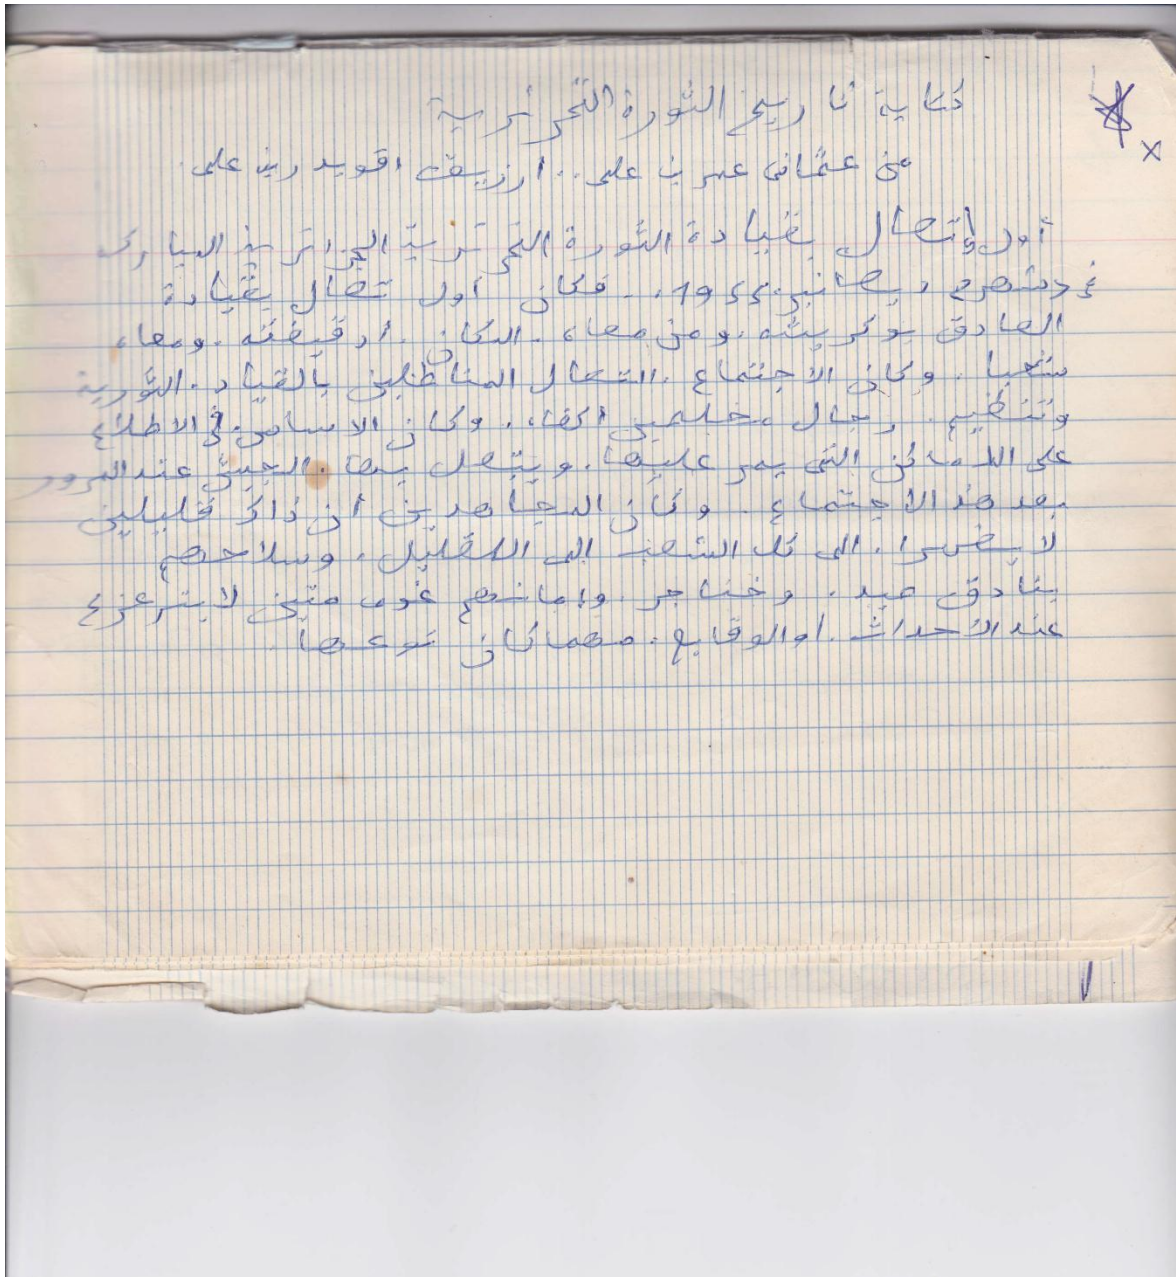 كتاية تاريخ الثورة التحريرية
من عثمانى عمر بن على .. ارزيق اقويدر بن على
أول إتصال بقيادة الثورة التحريرية الجزائرية المبارك
فى شهر ديصانبر 1955. فكان أول تصال بقيادة
الصادق بوكريشه. ومن معاه. المكان. ارقيقته. ومعاه
شعبا. وكان الاجتماع. التصال المناظلين بالقياد. الثورية
وتنظيم. رجال مخلصين اكفاء. وكان الاساس فى الاطلاع
على اللاماكن التى يمر عليها. ويتصل بيها. الجيش عند المرور
بعد هذ الاجتماع. وكان المجاهدين ان ذاك قليلين
لا يضهروا. الى كل الشعب الى اللقليل. وسلاحهم
بنادق صيد. وخناجر. وإمانهم قوى متين لا يتزعزع
عند الأحداث. أو الوقايع. مهما كان نوعها.